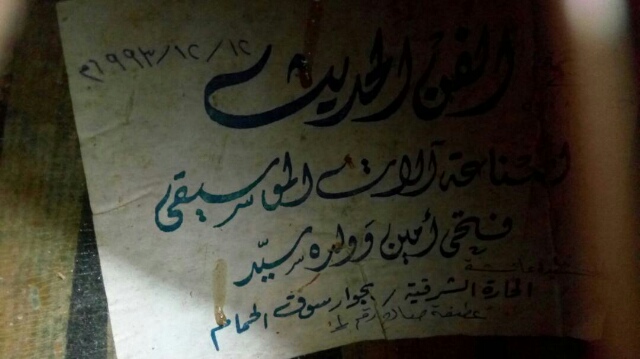 ١٩٩٣/١٢/١٢م
الفن الحديث
لصناعة آلات الموسيقى
فتحى أمين وولده سيّد
الحارة الشرقية / بجوار سوق الحمام
عطفة رقم